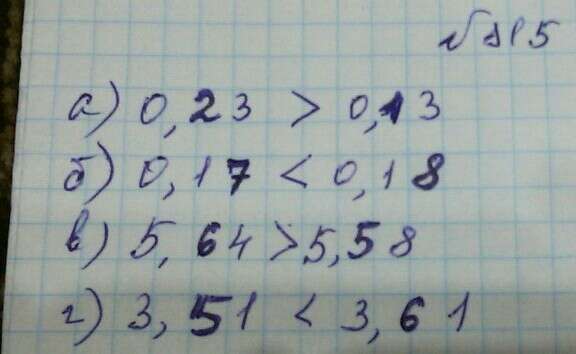 а) 0,23 > 0,13
б) 0,17 < 0,18
в) 5,64 > 5,58
г) 3,51 < 3,61